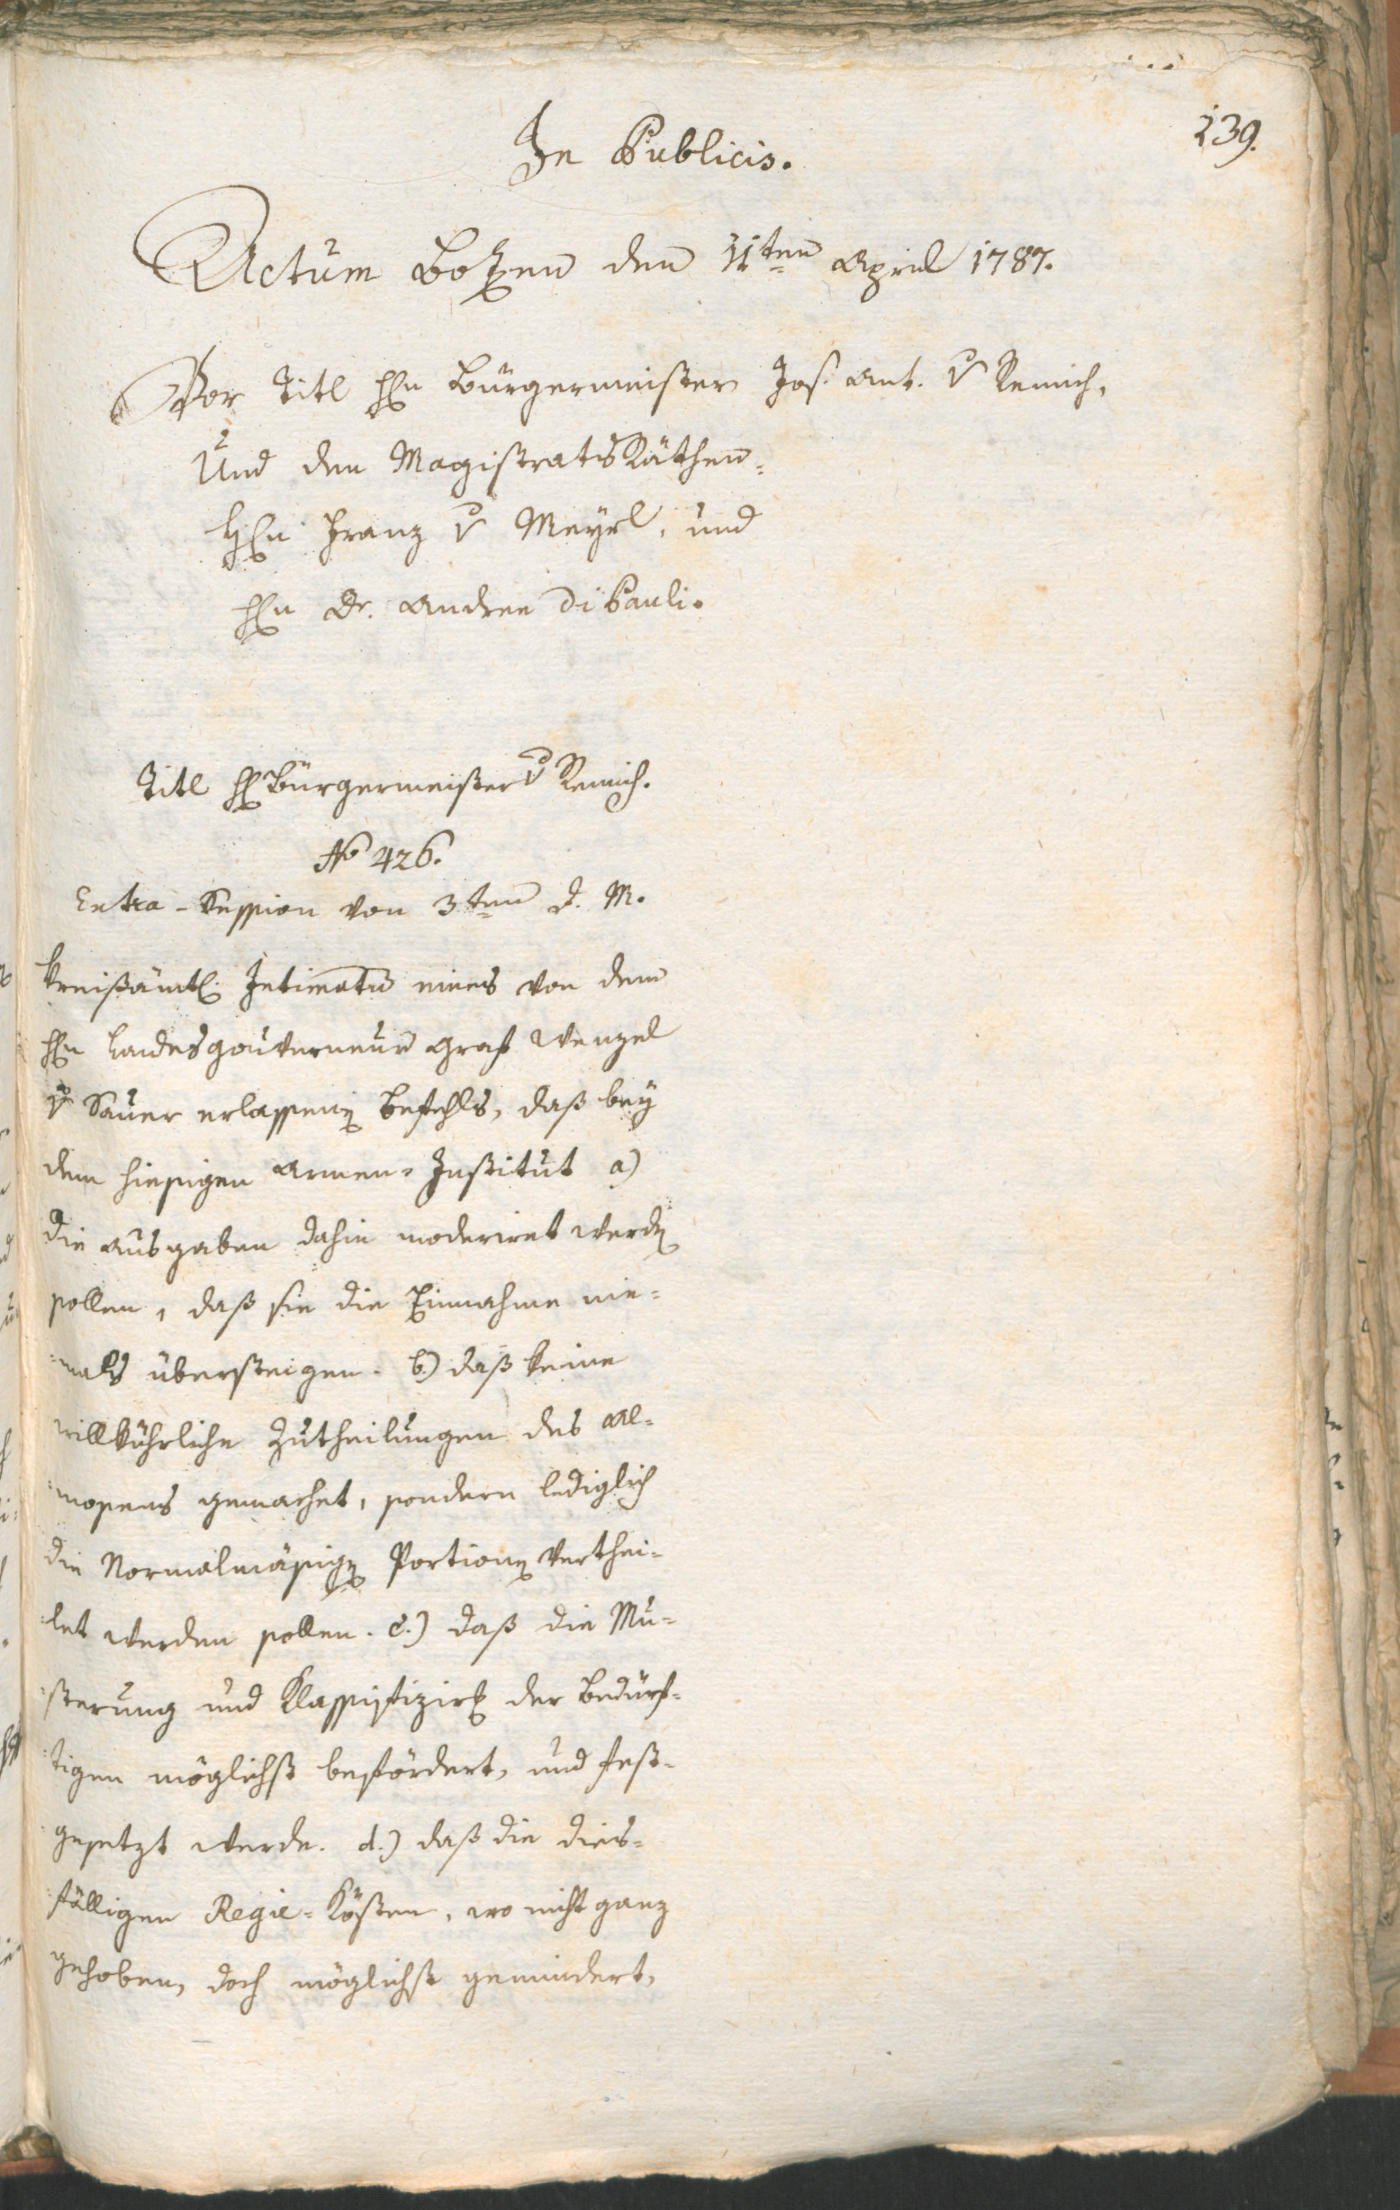 139.
In Publicis.
Actum Botzen den 11ten April 1787.
Vor Titl Hn Bürgermeister Jos. Ant. v Remich,
Und den Magistrats Räthen
Hn Franz v Meyrl, und
Hn Dr. Andree Di Pauli.
Titl H Bürgermeister v Remich.
No 426.
Extra-Session von 3ten d. M.
Kreißämtl. Intimatum eines von dem
Hn Landesgouverneur Graf Wenzel
v Sauer erlassenen Befehls, daß bey
dem hiesigen Armen-Institut a)
die Ausgaben dahin moderiret werden
sollen, daß sie die Einnahme nie-
mals übersteigen. b.) daß keine
willkührliche Zutheilungen des All-
mosens gemachet, sondern lediglich
die Normalmäsigen Portionen verthei-
let werden sollen. c.) daß die Mu-
sterung und Klassifizir der Bedürf-
tigen möglichst befördert, und fest-
gesetzt werde. d.) daß die dies-
fälligen Regie-Kösten, wo nicht ganz
gehoben, doch möglichst gemindert,